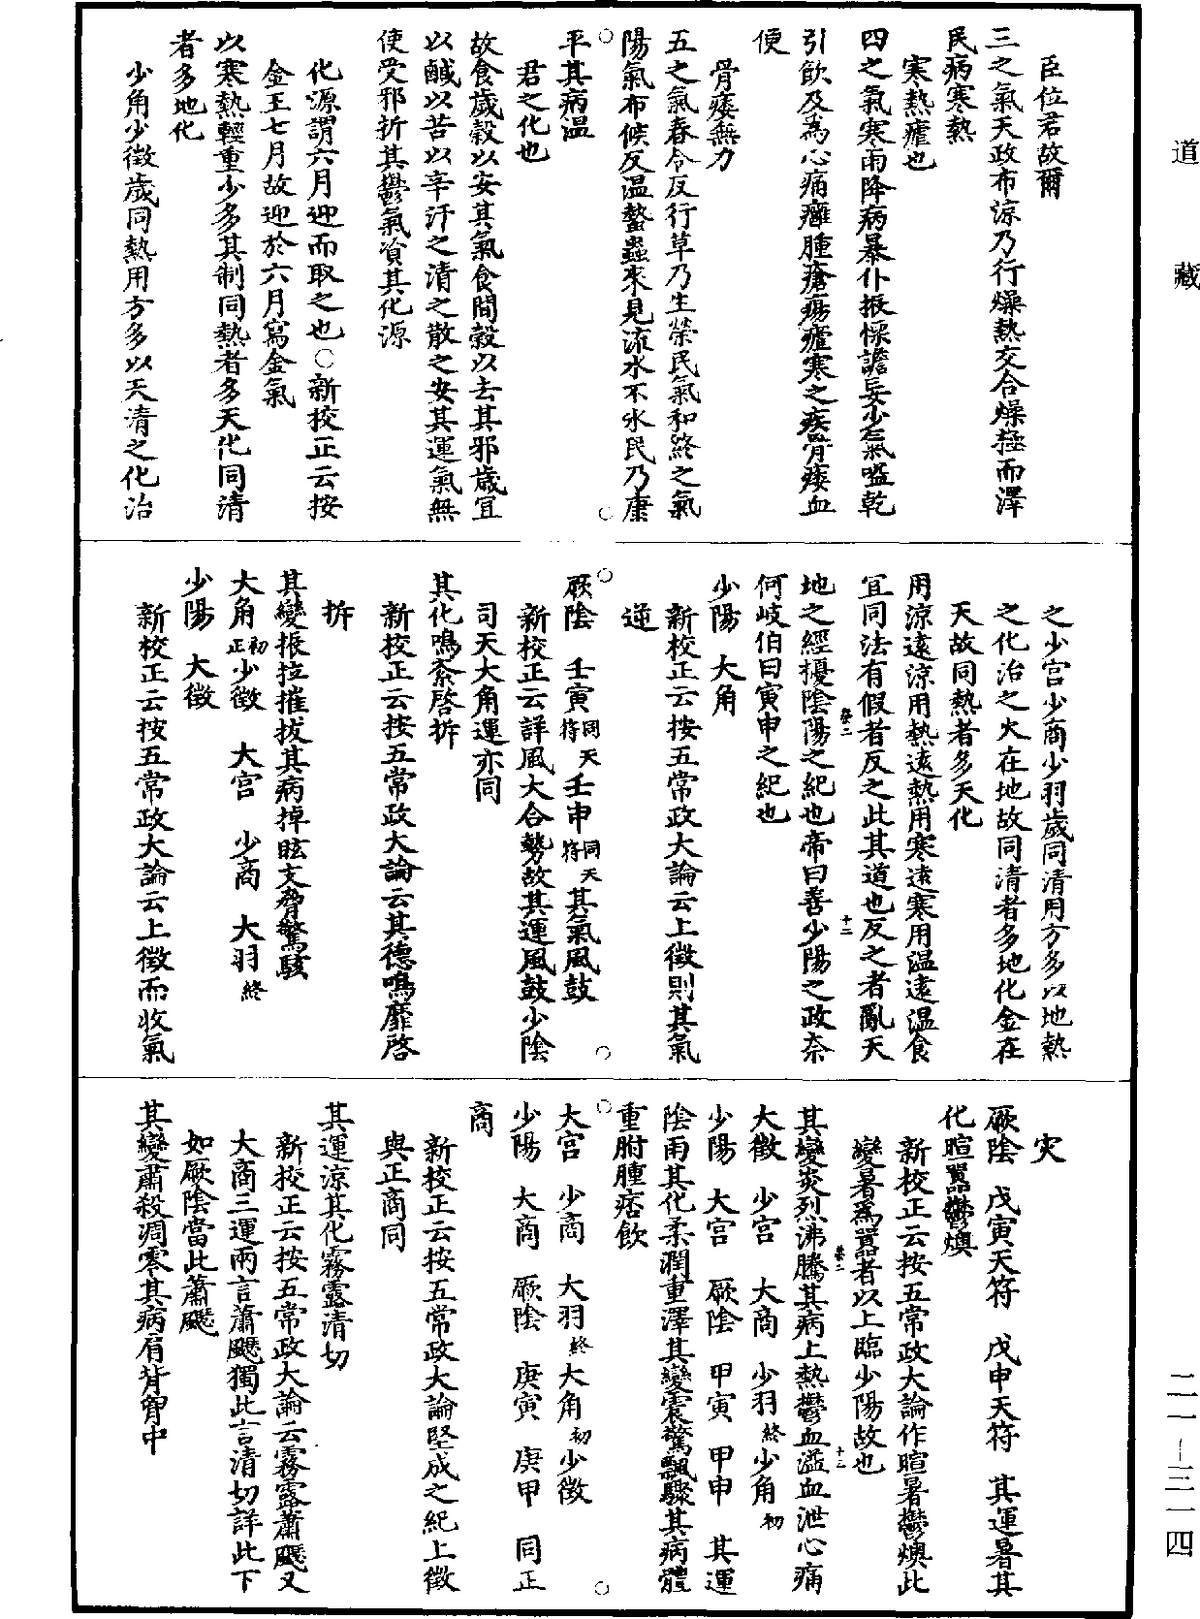 臣位君故爾
三之氣天政布涼乃行燥熱交合燥極而澤
民病寒熱
寒熱瘧也
四之氣寒雨降病暴仆振慄譫妄少氣嗌乾
引飲及為心痛癰腫瘡瘍瘧寒之疾骨痿血
便
骨痿無力
五之氣春令反行草乃生榮民氣和終之氣
陽氣布候反溫蟄蟲來見流水不冰民乃康
平其病溫
君之化也
故食歲穀以安其氣食間穀以去其邪歲宜
以鹹以苦以辛汗之清之散之安其運氣無
使受邪折其鬱氣資其化源
化源謂六月迎而取之也○新校正云按
金王七月故迎於六月寫金氣
以寒熱輕重少多其制同熱者多天化同清
者多地化
少角少徵歲同熱用方多以天清之化治
之少宮少商少羽歲同清用方多以地熱
之化治之火在地故同清者多地化金在
天故同熱者多天化
用涼遠涼用熱遠熱用寒遠寒用溫遠溫食
宜同法有假者反之此其道也反之者亂天
卷二 十二
地之經擾陰陽之紀也帝曰善少陽之政奈
何岐伯曰寅申之紀也
少陽 大角
新校正云按五常政大論云上徵則其氣
逆
厥陰 壬寅同天符壬申同天符其氣風鼓
新校正云詳風大合勢故其運風鼓少陰
司天大角運亦同
其化鳴紊啓拆
新校正云按五常政大論云其德鳴靡啓
拆
其變振拉摧拔其病掉眩支脅驚駭
大角初正少徵 大宮 少商 大羽終
少陽 大徵
新校正云按五常政大論云上徵而收氣
灾
厥陰 戊寅天符 戊申天符 其運暑其
化暄囂鬱燠
新校正云按五常政大論作暄暑鬱燠此
變暑爲囂者以上臨少陽故也
卷二 十三
其變炎烈沸騰其病上熱鬱血溢血泄心痛
大徵 少宮 大商 少羽終少角初
少陽 大宮 厥陰 甲寅 甲申 其運
陰雨其化柔潤重澤其變震驚飄驟其病體
重胕腫痞飲
大宮 少商 大羽終大角初少徵
少陽 大商 厥陰 庚寅 庚甲 同正
商
新校正云按五常政大論堅成之紀上徵
與正商同
其運涼其化霧露清切
新校正云按五常政大論云霧露蕭飋又
大商三運兩言蕭飋獨此言清切詳此下
如厥陰當此蕭飋
其變肅殺凋零其病肩背胷中
道藏
二一—三一四